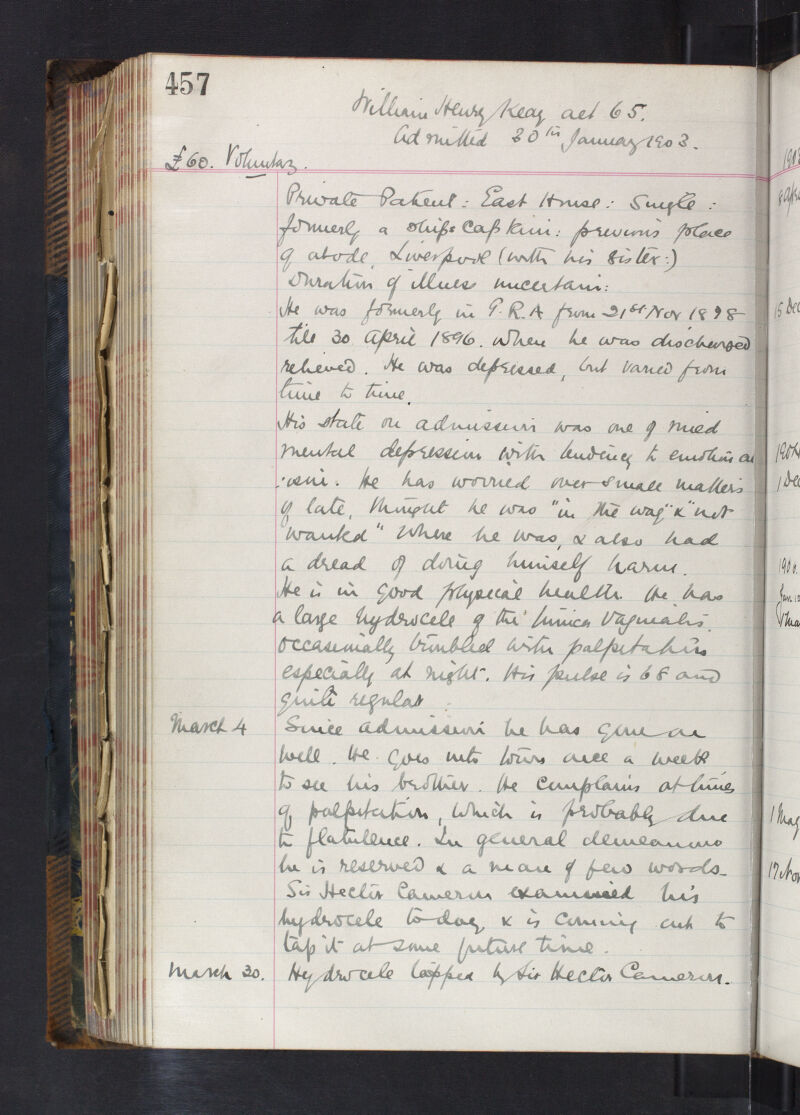 457
William Henry Keay aet 65.
Admitted 30th January 1903.
£60. Voluntary.
Private Patient: East House: Single:
formerly a ships Captain: previous place
of abode, Liverpool (with his sister:)
Duration of illness uncertain:
He was formerly in G.R.A from 21st Nov
till 30 April 1896. when he was discharged
relieved. He was depressed, but varied from
time to time.
His state on admission was one of
mental depression with tendency to emotional
:ism. He has worried over small matters
of late, thought he was "in the way" & "not
wanted" where he was, & also had
a dread of doing himself harm.
He is in good physical health. He has
a large hydrocele of the tunica vaginalis.
occasionally troubled with palpitations
especially at night. His pulse is 68 and
quite regular.
March 4
Since admission he has gone on
well. He goes into town once a week
to see his brother. He complains at times
of palpitation, which is probably due
to flatulence. In general demeanour
he is reserved & a man of few words.
Sir Hector Cameron examined his
hydrocele to-day & is coming out to
tap it at some future time.
March 30.
Hydrocele tapped by Sir Hector Cameron.
190
8 Apr
15 Dec
1904
1 Dec
190
1 May
17 Nov